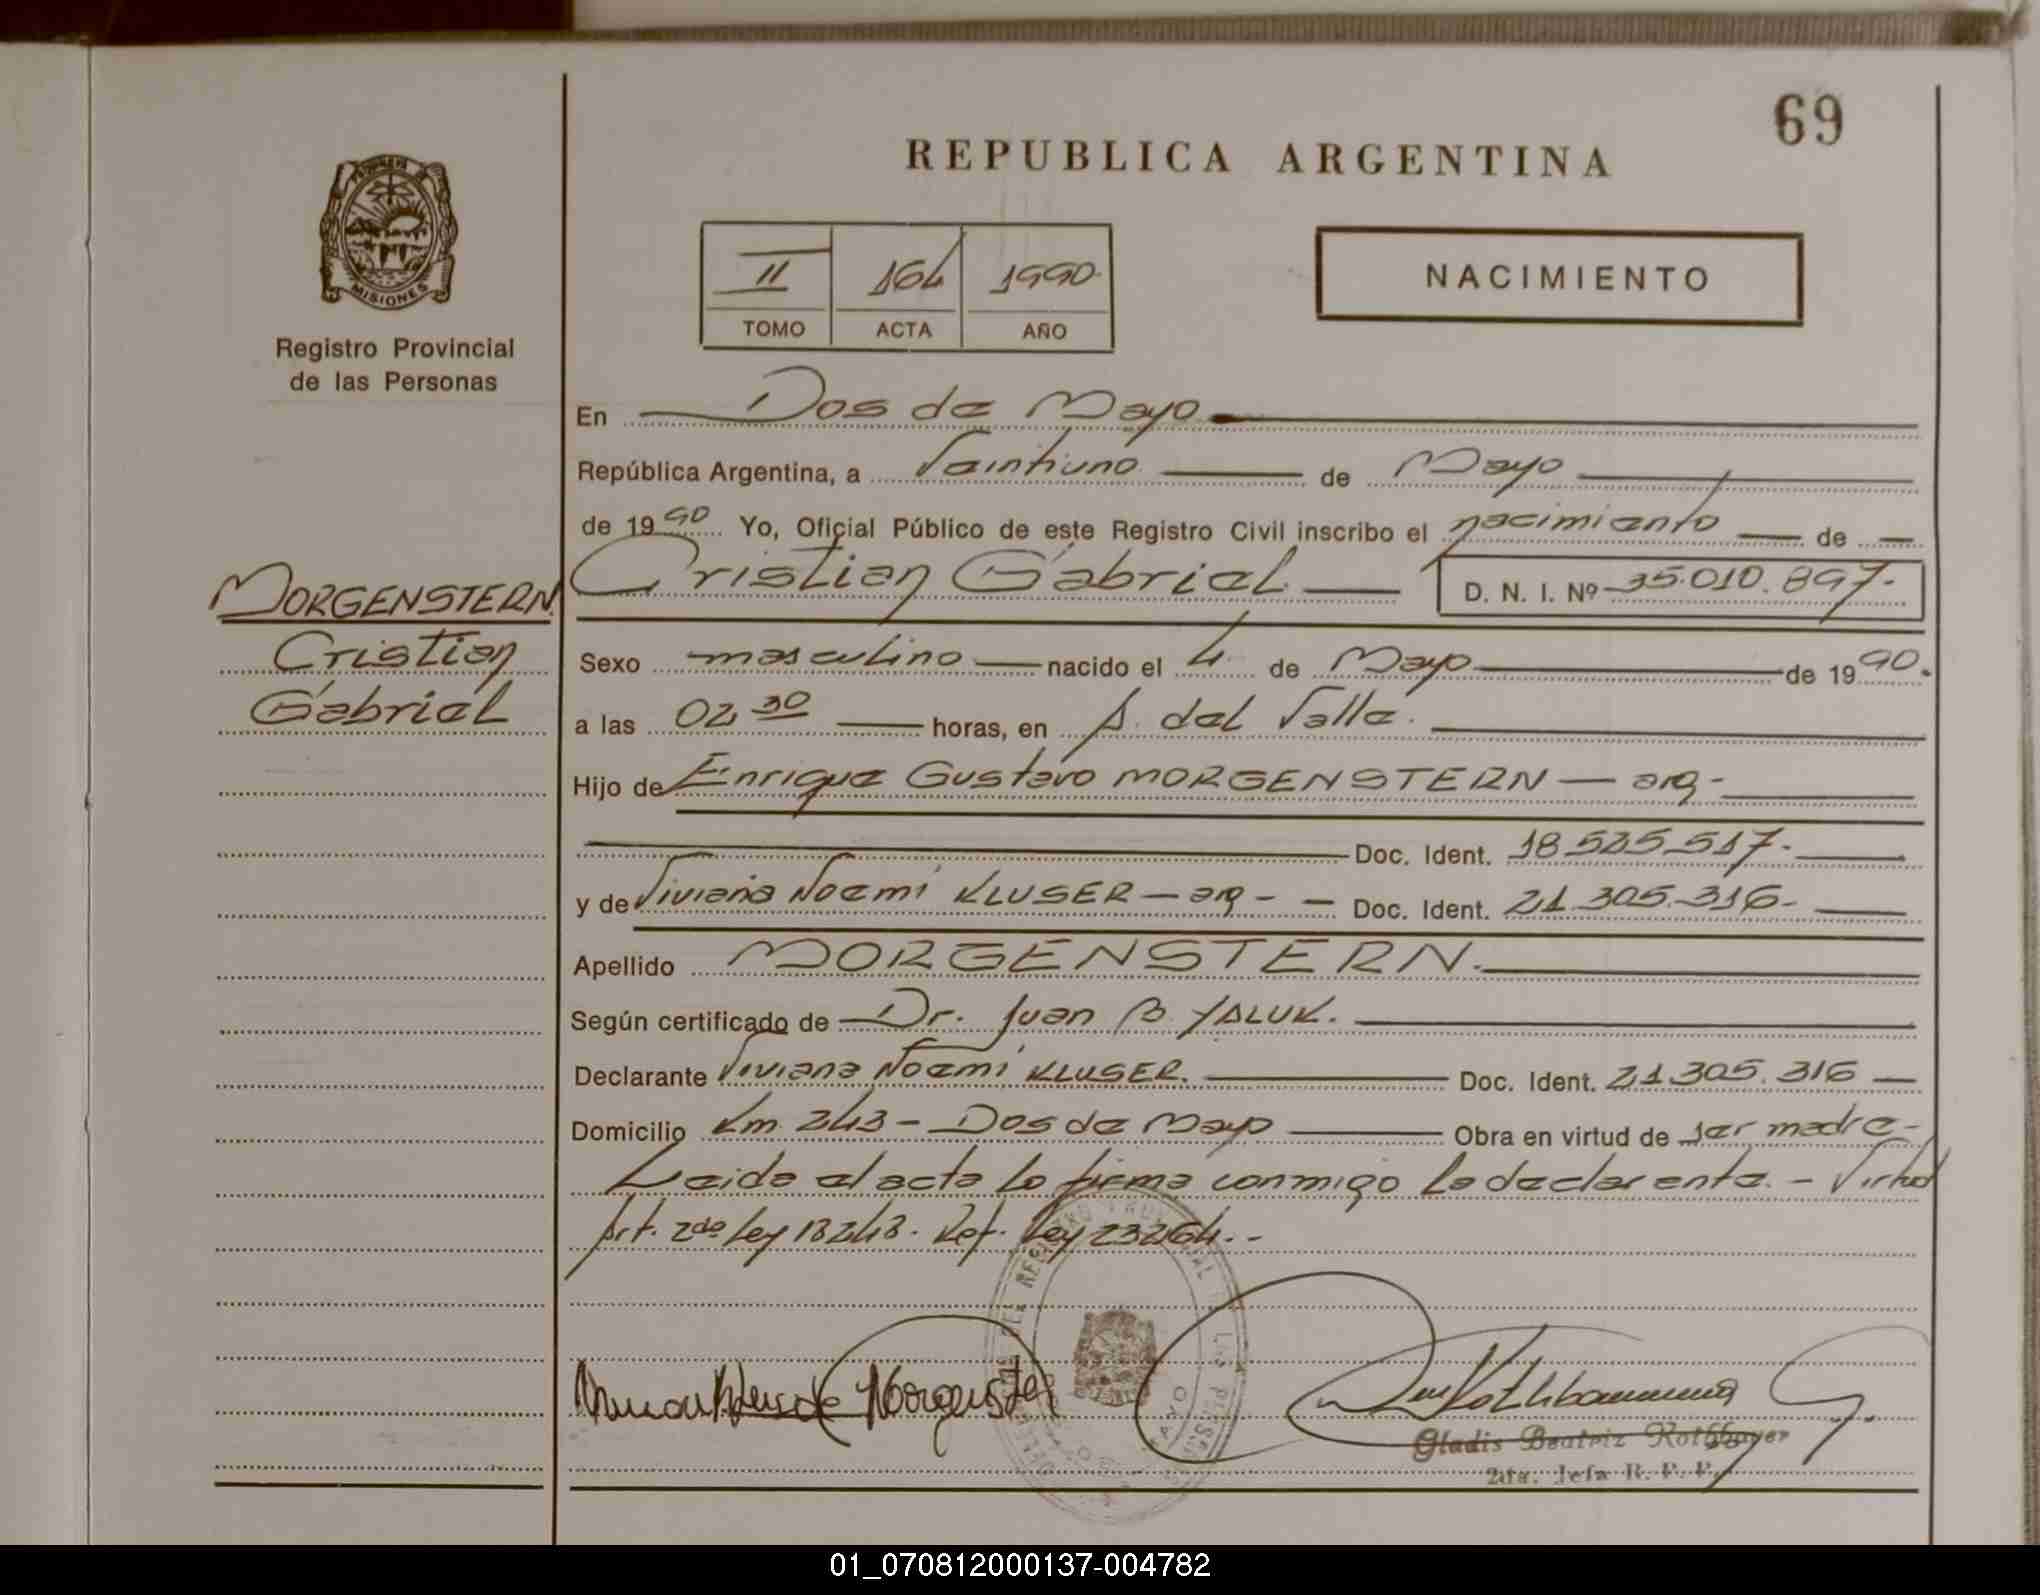 69
REPUBLICA ARGENTINA
PROVINCIA DE
MISIONES
Registro Provincial
de las Personas
II 164 1990
TOMO ACTA AÑO
NACIMIENTO
En Dos de Mayo
República Argentina, a Veintiuno de Mayo
de 1990 Yo, Oficial Público de este Registro Civil inscribo el nacimiento de
Cristian Gabriel D. N. I. Nº 35.010.897.-
MORGENSTERN
Cristian
Gabriel
Sexo masculino nacido el 4 de Mayo de 1990.
a las 02,30 horas, en A. del Valle.
Hijo de Enrique Gustavo MORGENSTERN — arg -
Doc. Ident. 18.525.517.-
y de Viviana Noemí KLUSER — arg - Doc. Ident. 21.305.316-
Apellido MORGENSTERN.
Según certificado de Dr. Juan B. YALUK.
Declarante Viviana Noemí KLUSER. Doc. Ident. 21.305.316
Domicilio Km. 243 - Dos de Mayo Obra en virtud de ser madre-
Leida el acta lo firma conmigo la declarante. - Virtud
Art. 2do Ley 18248. Ref. Ley 23264. -
de Morgenstern
Gladis Beatriz
Jefa R. P. P.
01_070812000137-004782